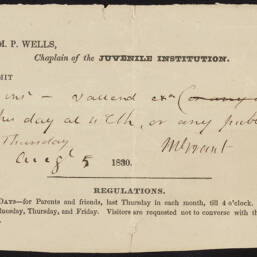 M. P. WELLS,
Chaplain of the JUVENILE INSTITUTION.
MIT
day at or any
Thursday
Augt 5 1830. M Grant
REGULATIONS.
DAYS—for Parents and friends, last Thursday in each month, till 4 o'clock.
uesday, Thursday, and Friday. Visiters are requested not to converse with the